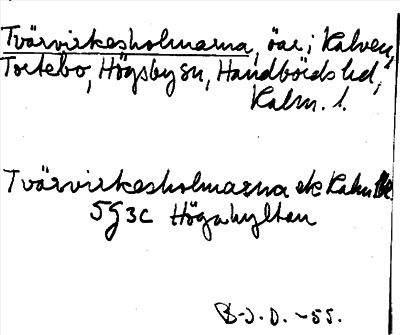 Tvärvirkesholmarna, öar, i Kalven,
Tortebo, Högsby sn, Handbörds hd,
Kalm. l.
Tvärvirkesholmarna ek Kalm. 
5G3c Högahylten
B-J.D. -55.